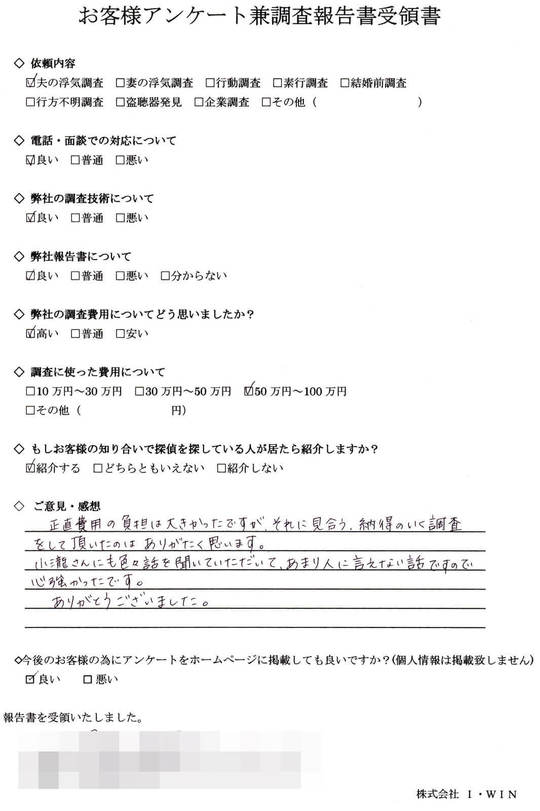 お客様アンケート兼調査報告書受領書
◇ 依頼内容
☑夫の浮気調査 □妻の浮気調査 □行動調査 □素行調査 □結婚前調査
□行方不明調査 □盗聴器発見 □企業調査 □その他（ ）
◇ 電話・面談での対応について
☑良い □普通 □悪い
◇ 弊社の調査技術について
☑良い □普通 □悪い
◇ 弊社報告書について
☑良い □普通 □悪い □分からない
◇ 弊社の調査費用についてどう思いましたか？
☑高い □普通 □安い
◇ 調査に使った費用について
□10 万円～30 万円 □30 万円～50 万円 ☑50 万円～100 万円
□その他（ 円）
◇ もしお客様の知り合いで探偵を探している人が居たら紹介しますか？
☑紹介する □どちらともいえない □紹介しない
◇ ご意見・感想
正直費用の負担は大きかったですが、それに見合う、納得のいく調査
をして頂いたのは ありがたく思います。
小瀧さんにも色々話を聞いていただいて、あまり人に言えない話ですので
心強かったです。
ありがとうございました。
◇今後のお客様の為にアンケートをホームページに掲載しても良いですか？(個人情報は掲載致しません)
☑良い □悪い
報告書を受領いたしました。
株式会社 I・WIN